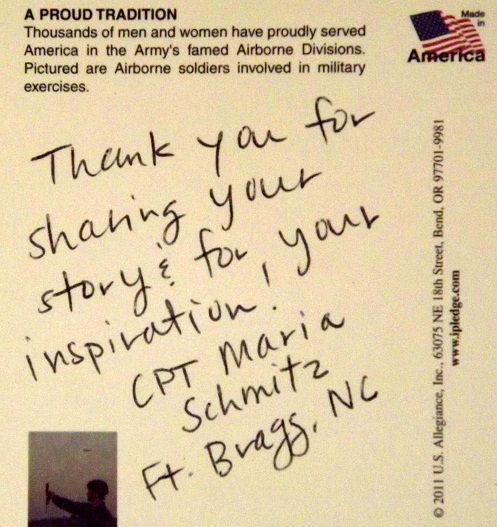 A PROUD TRADITION
Thousands of men and women have proudly served
America in the Army's famed Airborne Divisions.
Pictured are Airborne soldiers involved in military
exercises.
Made
in
America
Thank you for
sharing your
story & for your
inspiration!
CPT Maria
Schmitz
Ft. Bragg, NC
© 2011 U.S. Allegiance, Inc., 63075 NE 18th Street, Bend, OR 97701-9981
www.ipledge.com